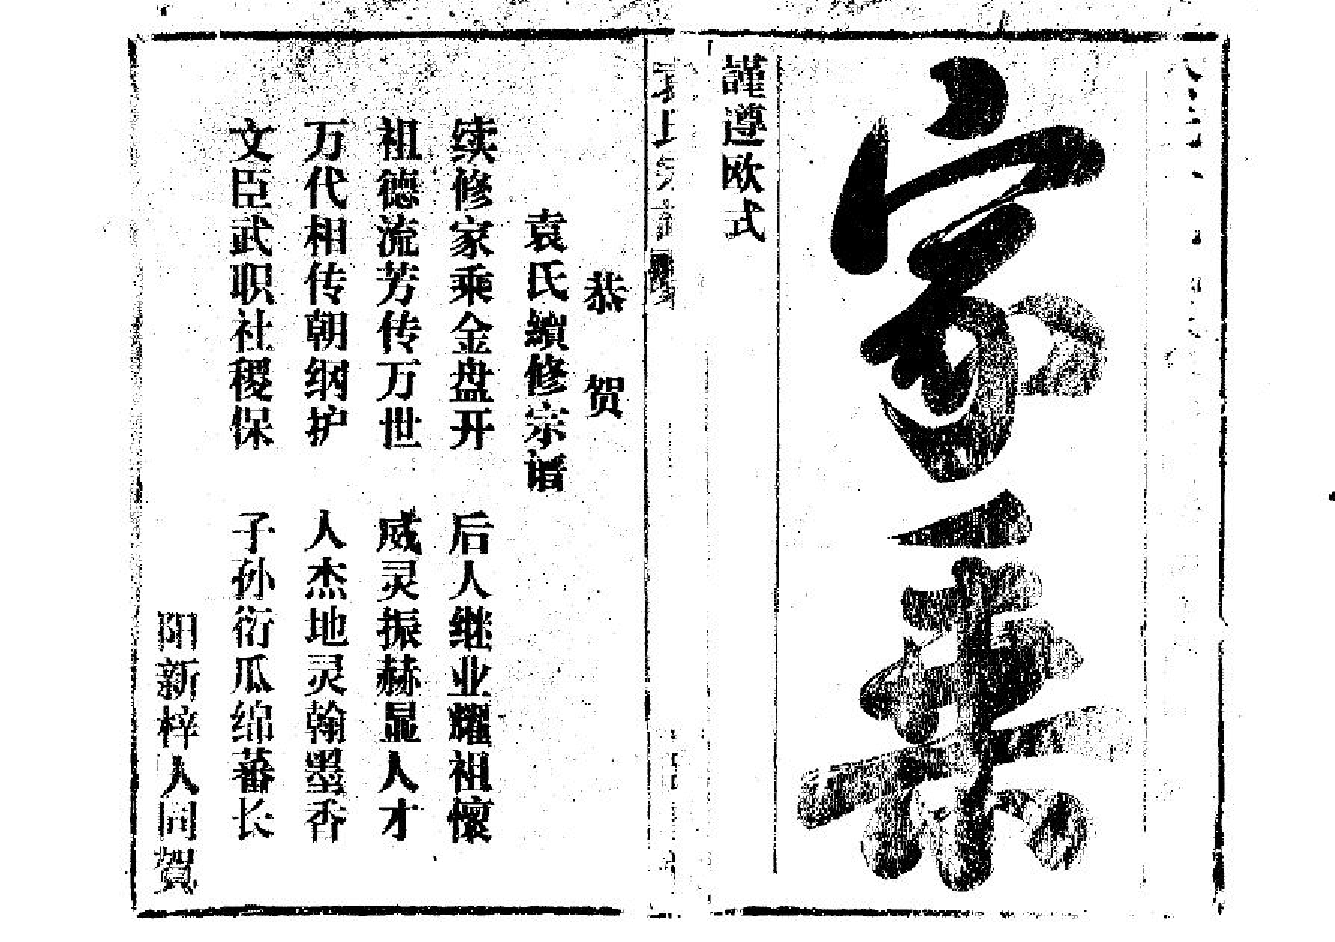 家乘
謹遵欧式
恭贺
袁氏續修宗谱
续修家乘金盘开 后人继业耀祖懷
祖德流芳传万世 威灵振赫显人才
万代相传朝纲护 人杰地灵翰墨香
文臣武职社稷保 子孙衍瓜绵蕃长
阳新梓人同賀